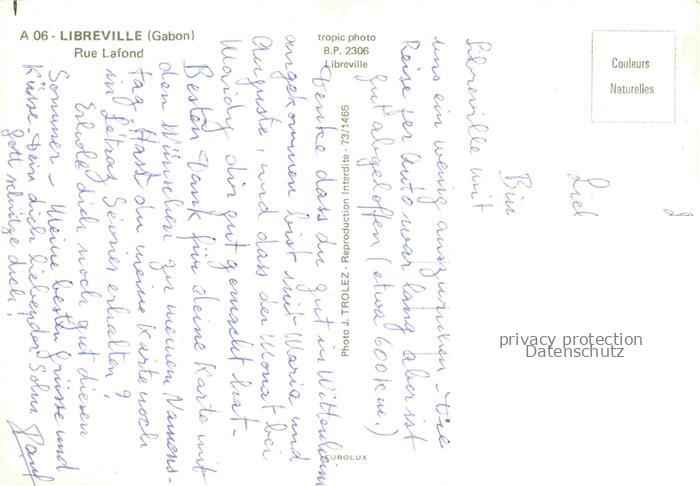 A 06 - LIBREVILLE (Gabon)
Rue Lafond
tropic photo
B.P. 2306
Libreville
Couleurs
Naturelles
Photo J. TROLEZ - Reproduction Interdite - 73/1466
EUROLUX
privacy protection
Datenschutz
Lieb
Bin
Libreville mit
uns ein wenig auszuruhen - Die
Reise per Auto war lang aber ist
gut abgeloffen (etwa 600 km.)
Denke dass du gut in Wittenheim
angekommen bist mit Maria und
Auguste, und dass der Monat bei
dir gut gemacht hat -
Besten Dank für deine Karte mit
den Wünschen zu meinem Namens-
tag. Hast du meine Karte noch
in erhalten?
Erhole dich noch gut diesen
Sommer - Meine besten Grüsse und
Küsse - Dein dich liebender Sohn
Gott schütze dich! Paul